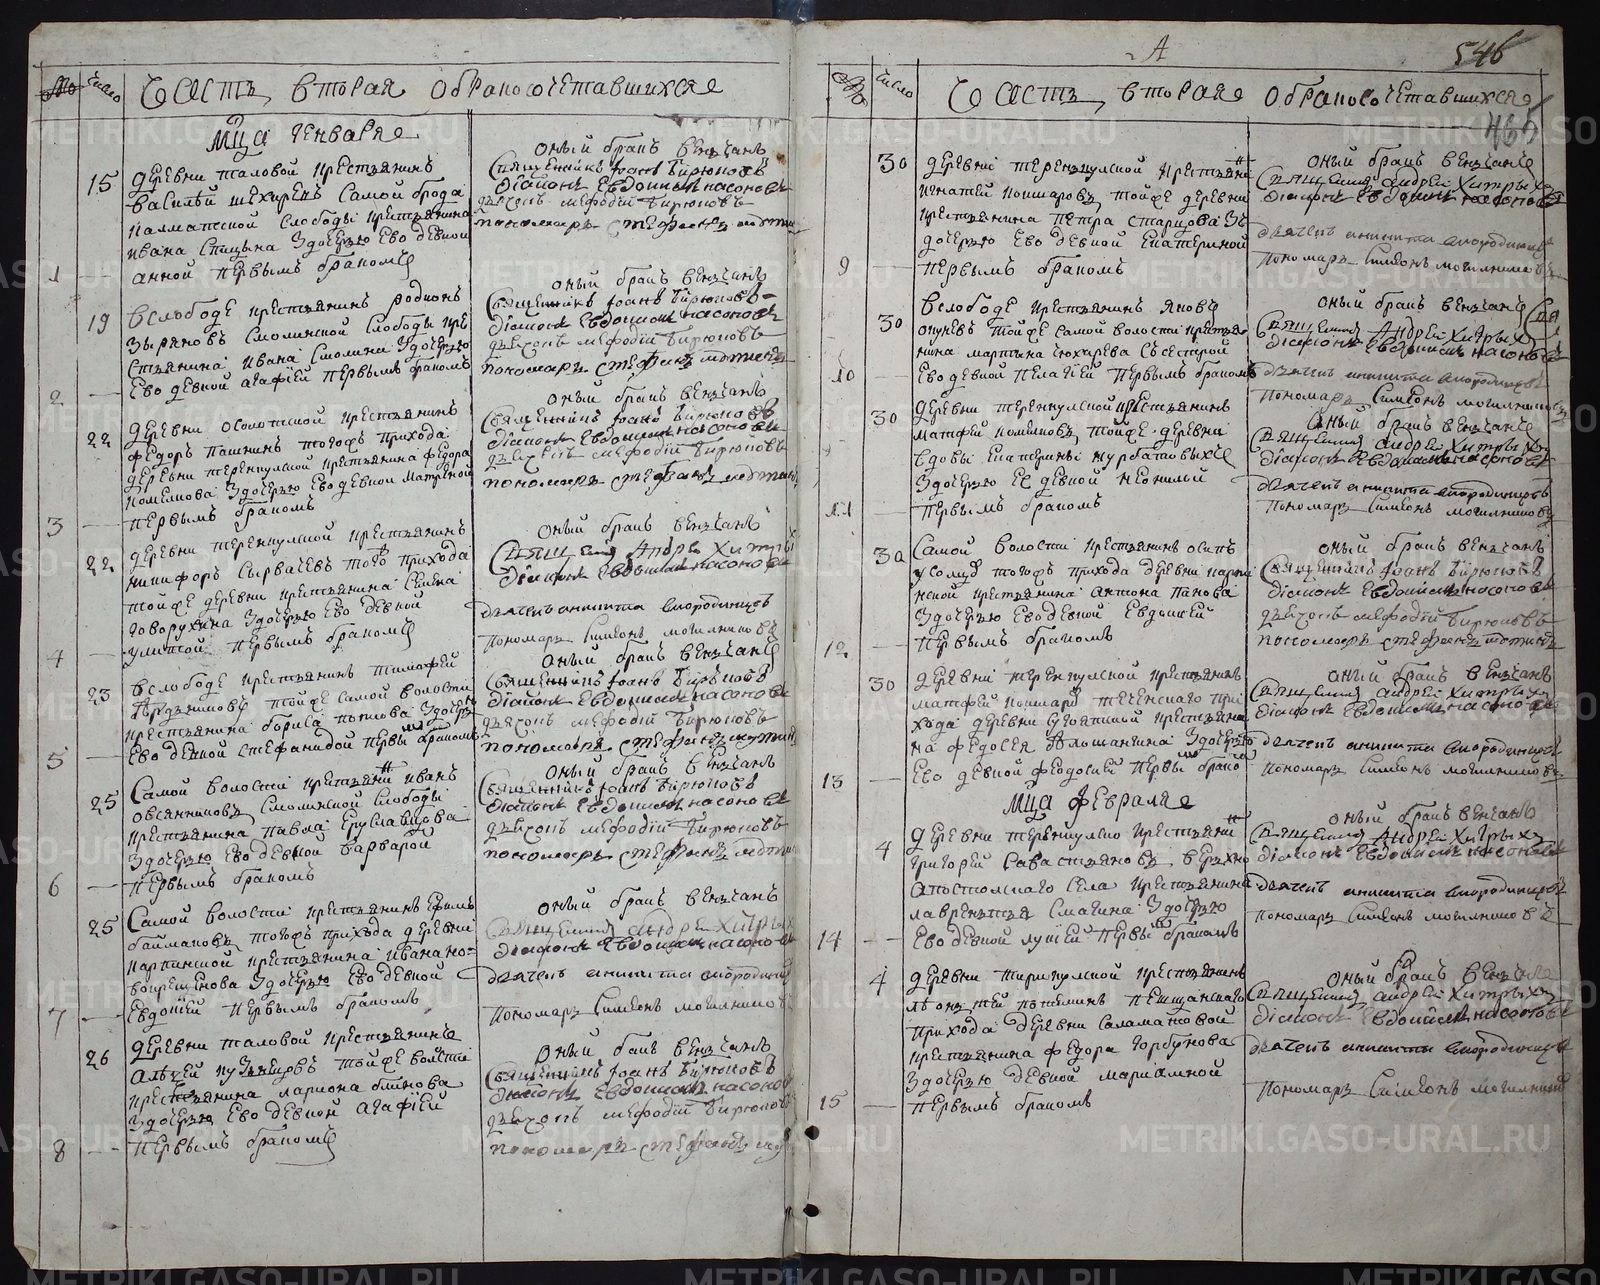 № число Часть вторая обракосочетавшихся
Мца генваря
15 деревни таловой крестьянинъ
василей
калматской слободы крестьянина
ивана Спицына здочерью ево девкой
1 анной первымъ бракомъ
оный бракъ венчалъ
Священникъ Іоанъ Бирюковъ
діаконъ Евдокимъ насоновъ
дьячекъ мефодій Бирюковъ
пономарь стефанъ
19 вслободе крестьянинъ родионъ
зыряновъ Смолинской слободы кре
стьянина ивана Смолина здочерью
2 ево девкой агафіей первымъ бракомъ
оный бракъ венчалъ
Священникъ Іоанъ Бирюковъ
діаконъ Евдокимъ насоновъ
дьячекъ мефодій Бирюковъ
пономарь стефанъ
22 деревни осолотской крестьянинъ
федоръ Пашнинъ тогожъ прихода
деревни теренкулской крестьянина федора
помелова здочерью ево девкой матреной
3 первымъ бракомъ
оный бракъ венчалъ
Священникъ Іоанъ Бирюковъ
діаконъ Евдокимъ насоновъ
дьячекъ мефодій Бирюковъ
пономарь стефанъ
22 деревни теренкулской крестьянинъ
никифоръ Сырвачевъ того прихода
тойже деревни крестьянина
говорухина здочерью ево девкой
4 улитой первымъ бракомъ
оный бракъ венчалъ
Священникъ Андрей Хитрыхъ
діаконъ Евдокимъ насоновъ
дьячекъ никита Смородинцовъ
пономарь Симеонъ могилниковъ
23 вслободе крестьянинъ тимофей
тойже самой волости
крестьянина бориса попова здочерью
5 ево девкой стефанидой первымъ бракомъ
оный бракъ венчалъ
Священникъ Іоанъ Бирюковъ
діаконъ Евдокимъ насоновъ
дьячекъ мефодій Бирюковъ
пономарь стефанъ
25 Самой волости крестьянинъ иванъ
овсянниковъ Смолинской Слободы
крестьянина павла Еруславцова
здочерью ево девкой варварой
6 первымъ бракомъ
оный бракъ венчалъ
Священникъ Іоанъ Бирюковъ
діаконъ Евдокимъ насоновъ
дьячекъ мефодій Бирюковъ
пономарь стефанъ
25 Самой волости крестьянинъ Ефимъ
баймаковъ тогожъ прихода деревни
карпинской крестьянина ивана но-
вокрещенова здочерью ево девкой
7 Евдокіей первымъ бракомъ
оный бракъ венчалъ
Священникъ андрей Хитрыхъ
діаконъ Евдокимъ насоновъ
дьячекъ никита Смородинцовъ
пономарь Симеонъ могилниковъ
26 деревни таловой крестьянинъ
алѣѯей кузнецовъ тойже волости
крестьянина лариона блинова
здочерью ево девкой агафіей
8 первымъ бракомъ
оный бакъ венчалъ
Священникъ Іоанъ Бирюковъ
діаконъ Евдокимъ насоновъ
дьячекъ мефодій Бирюковъ
пономарь стефанъ
546
465
№ число Часть вторая обракосочетавшихся
30 деревни теренкулской крестьянинъ
игнатей кошкаровъ тойже деревни
крестьянина петра старцова зъ
дочерью ево девкой екатериной
9 первымъ бракомъ
оный бракъ венчалъ
Священникъ андрей Хитрыхъ
діаконъ Евдокимъ насоновъ
дьячекъ никита Смородинцовъ
пономарь Симеонъ могилниковъ
30 вслободе крестьянинъ яковъ
окуневъ тойже самой волости крестья
нина мартына сюхирева съ сестрой
10 ево девкой пелагіей первымъ бракомъ
оный бракъ венчалъ
Священникъ Андрей Хитрыхъ
діаконъ Евдокимъ насоновъ
дьячекъ никита Смородинцовъ
пономарь Симеонъ могилниковъ
30 деревни теренкулской крестьянинъ
матфей помеловъ тойже деревни
вдовы екатерины курбатовыхъ
здочерью ее девкой неонилой
11 первымъ бракомъ
оный бракъ венчалъ
Священникъ андрей Хитрыхъ
діаконъ Евдокимъ насоновъ
дьячекъ никита Смородинцовъ
пономарь Симеонъ могилниковъ
30 Самой волости крестьянинъ осипъ
усолцъ тогожъ прихода деревни карпи
нской крестьянина антона панова
здочерью ево девкой евдокией
12 первымъ бракомъ
оный бракъ венчалъ
Священникъ Іоанъ Бирюковъ
діаконъ Евдокимъ насоновъ
дьячекъ мефодій Бирюковъ
пономарь стефанъ
30 деревни теренкулской крестьянинъ
матфей кошкаръ теченскаго при
хода деревни крестьяни
на федосея здочерью
13 ево девкой феодосией первымъ бракомъ
оный бракъ венчалъ
Священникъ андрей Хитрыхъ
діаконъ Евдокимъ насоновъ
дьячекъ никита Смородинцовъ
пономарь Симеонъ могилниковъ
Мца февраля
4 деревни теренкулско крестьянинъ
григорей Савастьяновъ верхно
апостолскаго села крестьянина
лаврентья Смагина здочерью
14 ево девкой лукией первымъ бракомъ
оный бракъ венчалъ
Священникъ Андрей Хитрыхъ
діаконъ Евдокимъ насоновъ
дьячекъ никита Смородинцовъ
пономарь Симеонъ могилниковъ
4 деревни тирикулской крестьянинъ
леонтей пономинъ пещанскаго
прихода деревни Саламатовой
крестьянина федора горбунова
здочерью девкой мариамной
15 первымъ бракомъ
оный бракъ венчалъ
Священникъ андрей Хитрыхъ
діаконъ Евдокимъ насоновъ
дьячекъ никита Смородинцовъ
пономарь Симеонъ могилниковъ
METRIKI.GASO-URAL.RU